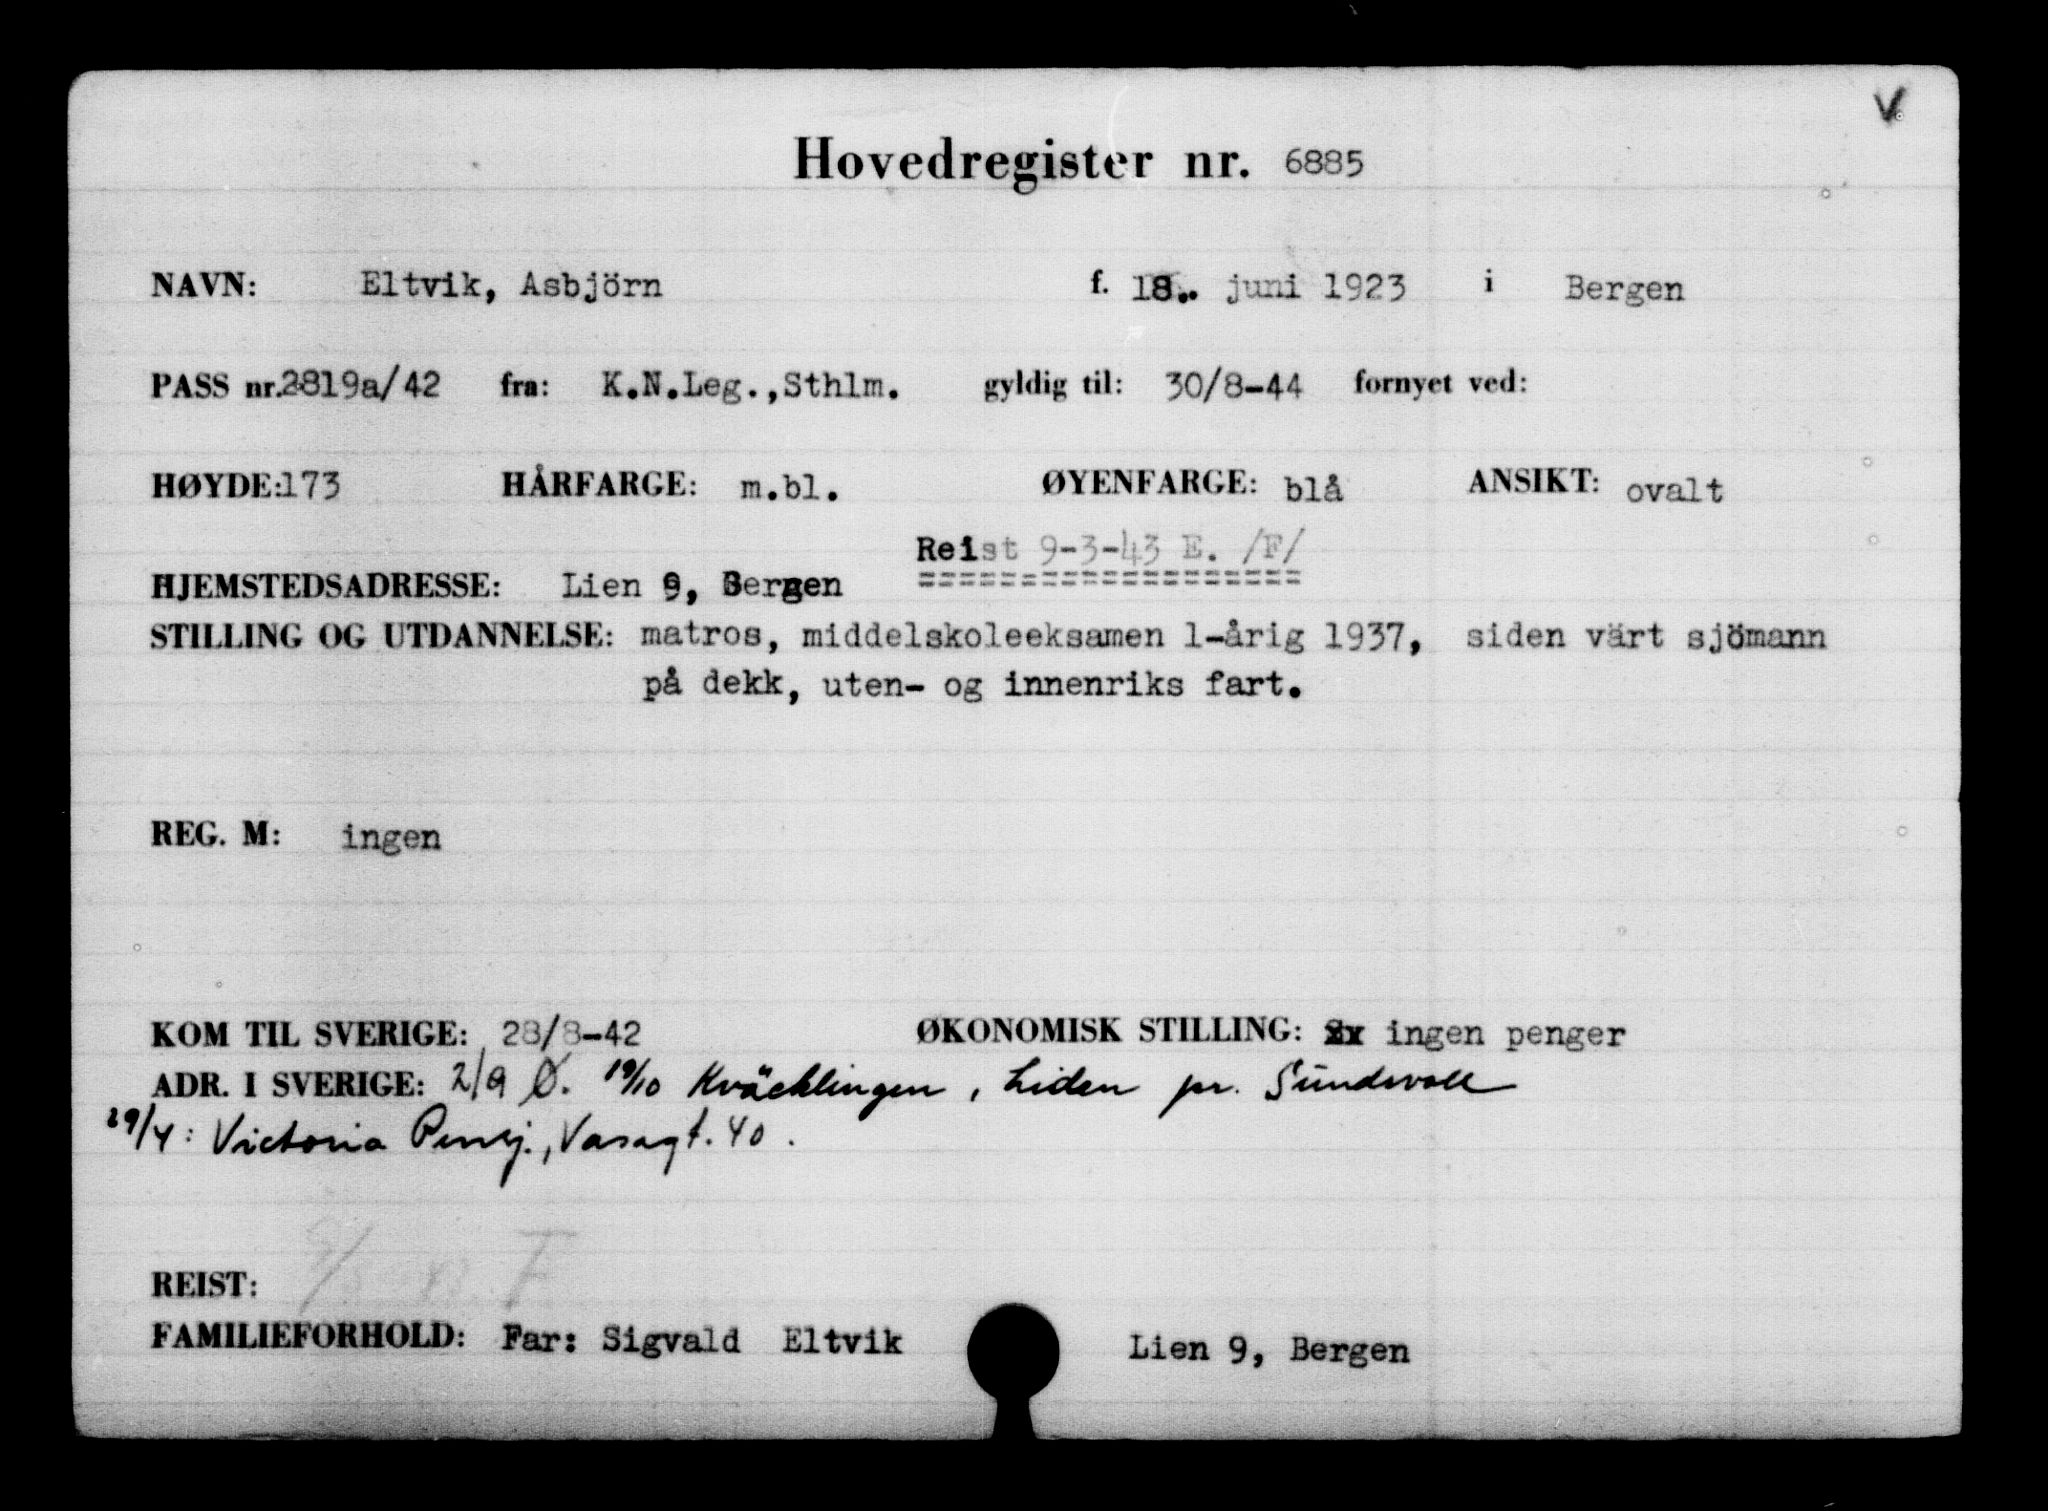 V
Hovedregister nr. 6885
NAVN: Eltvik, Asbjörn f. 18. juni 1923 i Bergen
PASS nr. 2819a/42 fra: K.N.Leg.,Sthlm. gyldig til: 30/8-44 fornyet ved:
HØYDE: 173 HÅRFARGE: m.bl. ØYENFARGE: blå ANSIKT: ovalt
Reist 9-3-43 E. /F/
====================
HJEMSTEDSADRESSE: Lien 9, Bergen
STILLING OG UTDANNELSE: matros, middelskoleeksamen 1-årig 1937, siden värt sjömann
på dekk, uten- og innenriks fart.
REG. M: ingen
KOM TIL SVERIGE: 28/8-42 ØKONOMISK STILLING: ingen penger
ADR. I SVERIGE: 2/9 Ø. 19/10 Kväcklingen, Liden pr. Sundsvall
29/4: Victoria Pensj., Vasagt. 40.
REIST: 9/3 43 F
FAMILIEFORHOLD: Far: Sigvald Eltvik Lien 9, Bergen